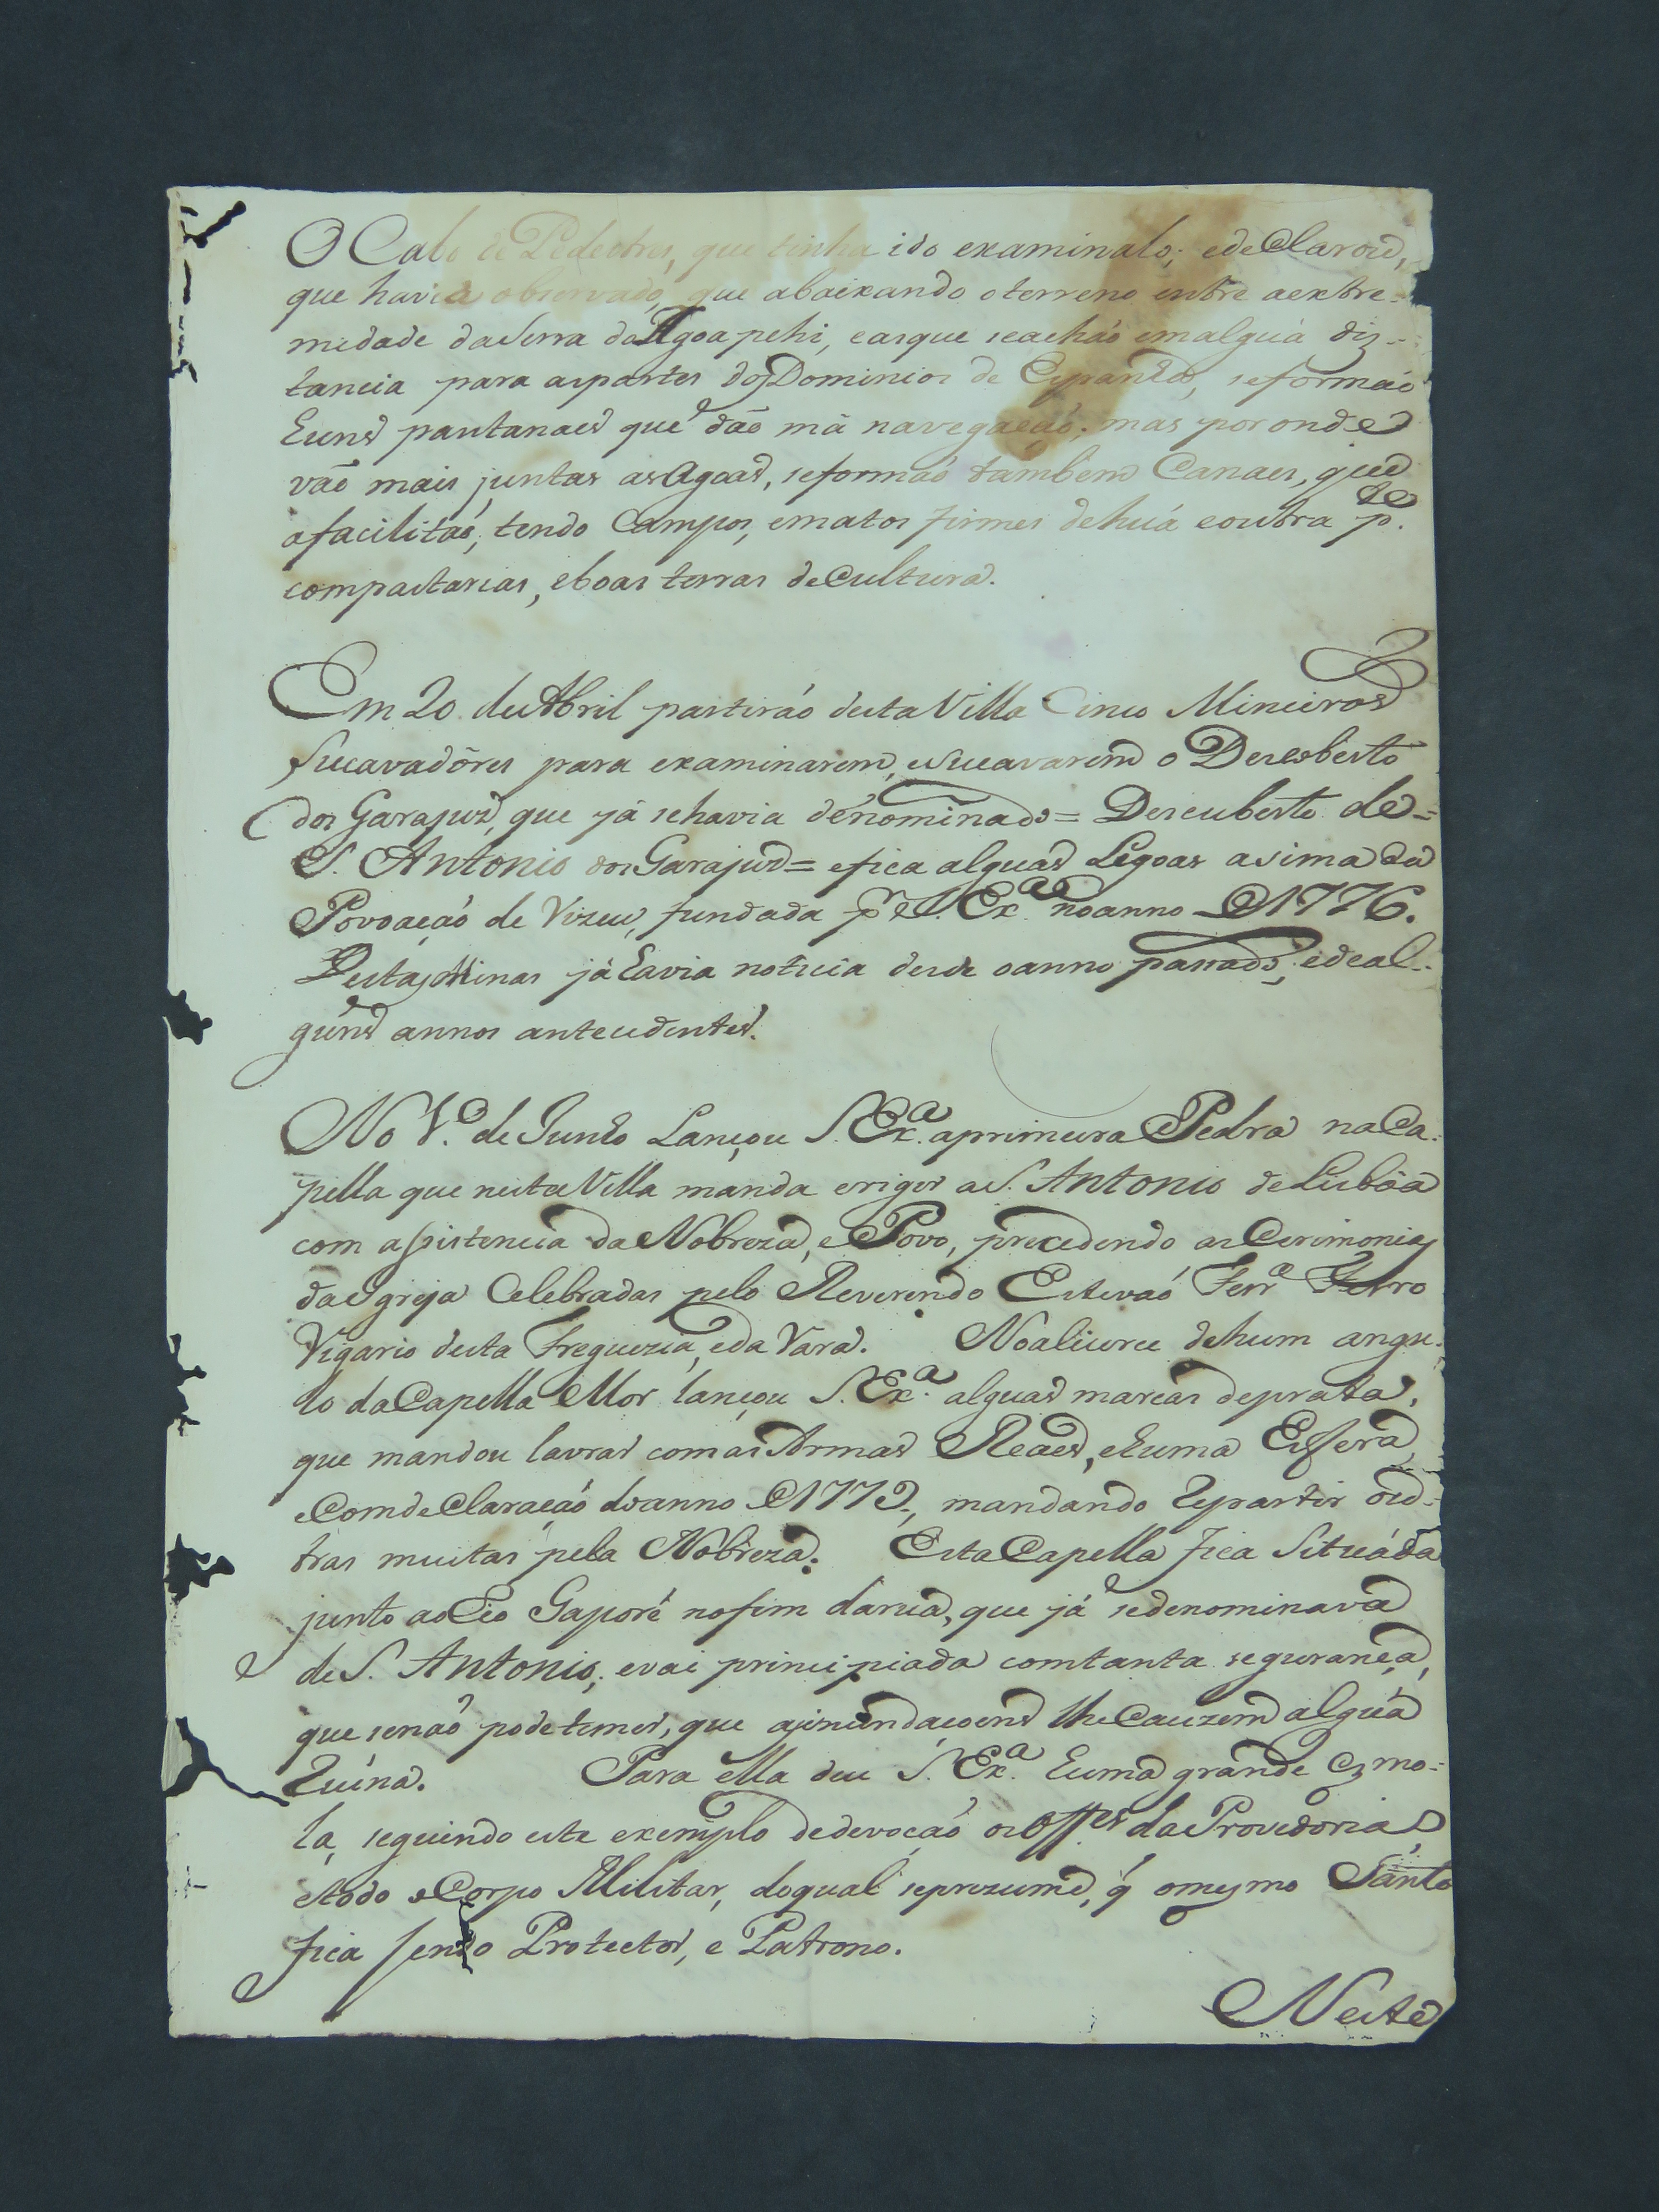 O Cabo de Pedestres, que tinha ido examinalo; edeClarou,
que havia observado, que abaixando oterreno entre aextre-
midade daSerra daAgoapehi, easque seachaó emalguá diz-
tancia para aspartes dosDominios de Espanha, seformaó
huns pantanaes que dão má navegaçaó; mas poronde
vão mais juntas asAgoas, seformaó tambem Canaes, que
afacilitaó, tendo Campos, ematos firmes dehuá eoutra p.te
compastarias, eboas terras deCultura.
Em 20 deAbril partiráo destaVilla Cinco Mineiros
Sucavadôres para examinarem, esucavarem o Descoberto
dos Garajus, que já sehavia denominado = Descuberto de=
S. Antonio dos Garajus = efica alguas Legoas asima da
Povoaçaó de Vizeu, fundada p.r S. Ex.a noanno de1776.
DestasMinas já havia noticia desde oanno passado, edeal-
guns annos antecedentes.
No 1.o de Junho Lançou S. Ex.a aprimeira Pedra naCa-
pella que nestaVilla manda erigir aS. Antonio deLisbôa
com assistencia daNobreza, ePovo, precedendo asCerimonias
daIgreja Celebradas pelo Reverendo Estevaó Ferr.a Ferro
Vigario desta Freguezia, eda Vara. Noalicerce dehum angu-
lo daCapella Mor lançou S. Ex.a alguas marcas deprata,
que mandou lavrar comasArmas Reaes, ehuma Esfera,
eComdeClaraçaó doanno de1779, mandando Repartir ou-
tras muitas pela Nobreza. EstaCapella fica Situáda
junto aoRio Gaporé nofim darua, que já sedenominava
deS. Antonio; evai principiada comtanta segurança,
que senaó podetemer, que asinundaçoens lheCauzem alguá
Ruina. Para ella deu S. Ex.a huma grande Ezmo-
la, seguindo este exemplo dedevoçaó osOff.es daProvedoria,
etodo oCorpo Militar, doqual seprezume, q̃ omesmo Santo
fica sendo Protector, e Patrono.
Neste